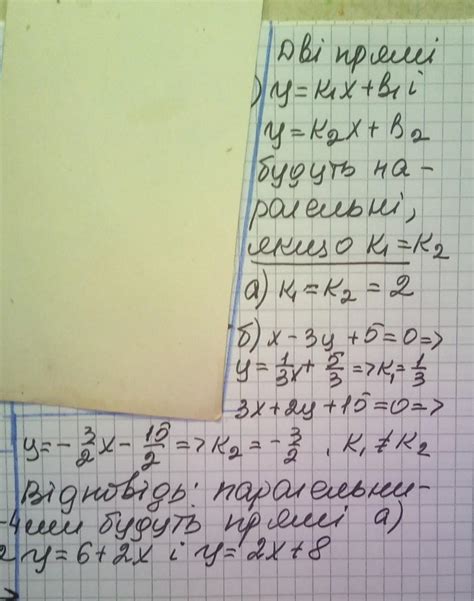 Дві прямі
) y=k₁x+b₁ і
y=k₂x+b₂
будуть па-
ралельні,
якщо k₁=k₂
а) k₁=k₂=2
б) x-3y+5=0=>
y=1/3x+5/3=>k₁=1/3
3x+2y+15=0=>
y=-3/2x-15/2=>k₂=-3/2, k₁≠k₂
Відповідь: паралельни-
ми будуть прямі а)
y=6+2x і y=2x+8